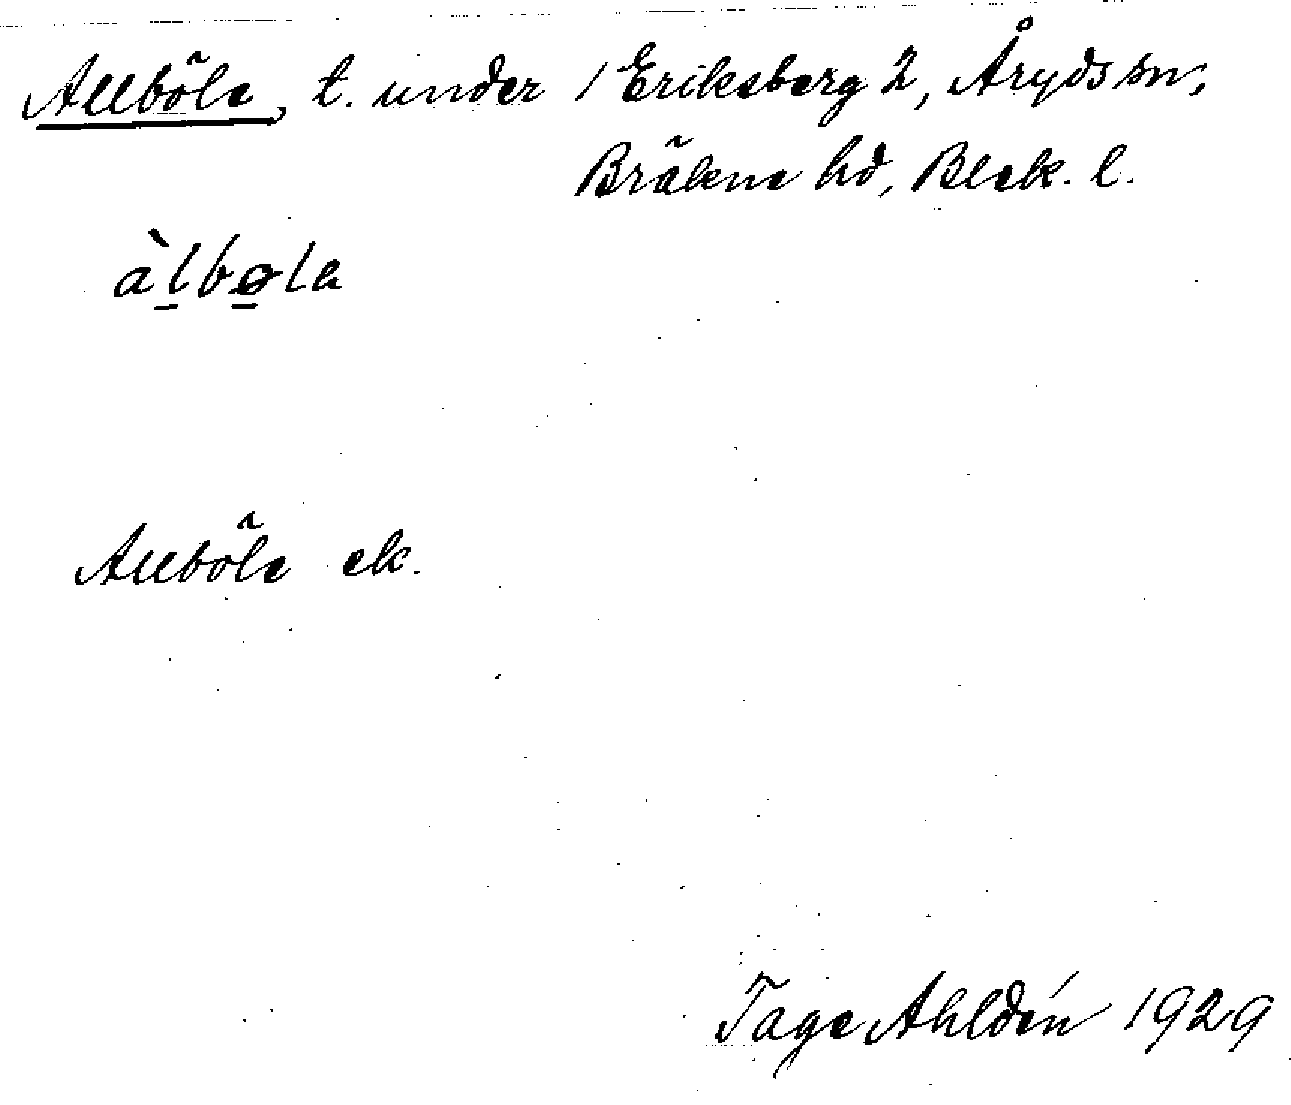 Allböle, t. under 1 Eriksberg 2, Åryds sn,
Bräkne hd, Blek. l.
àlbøla
Allböle ek.
Tage Ahldén 1929